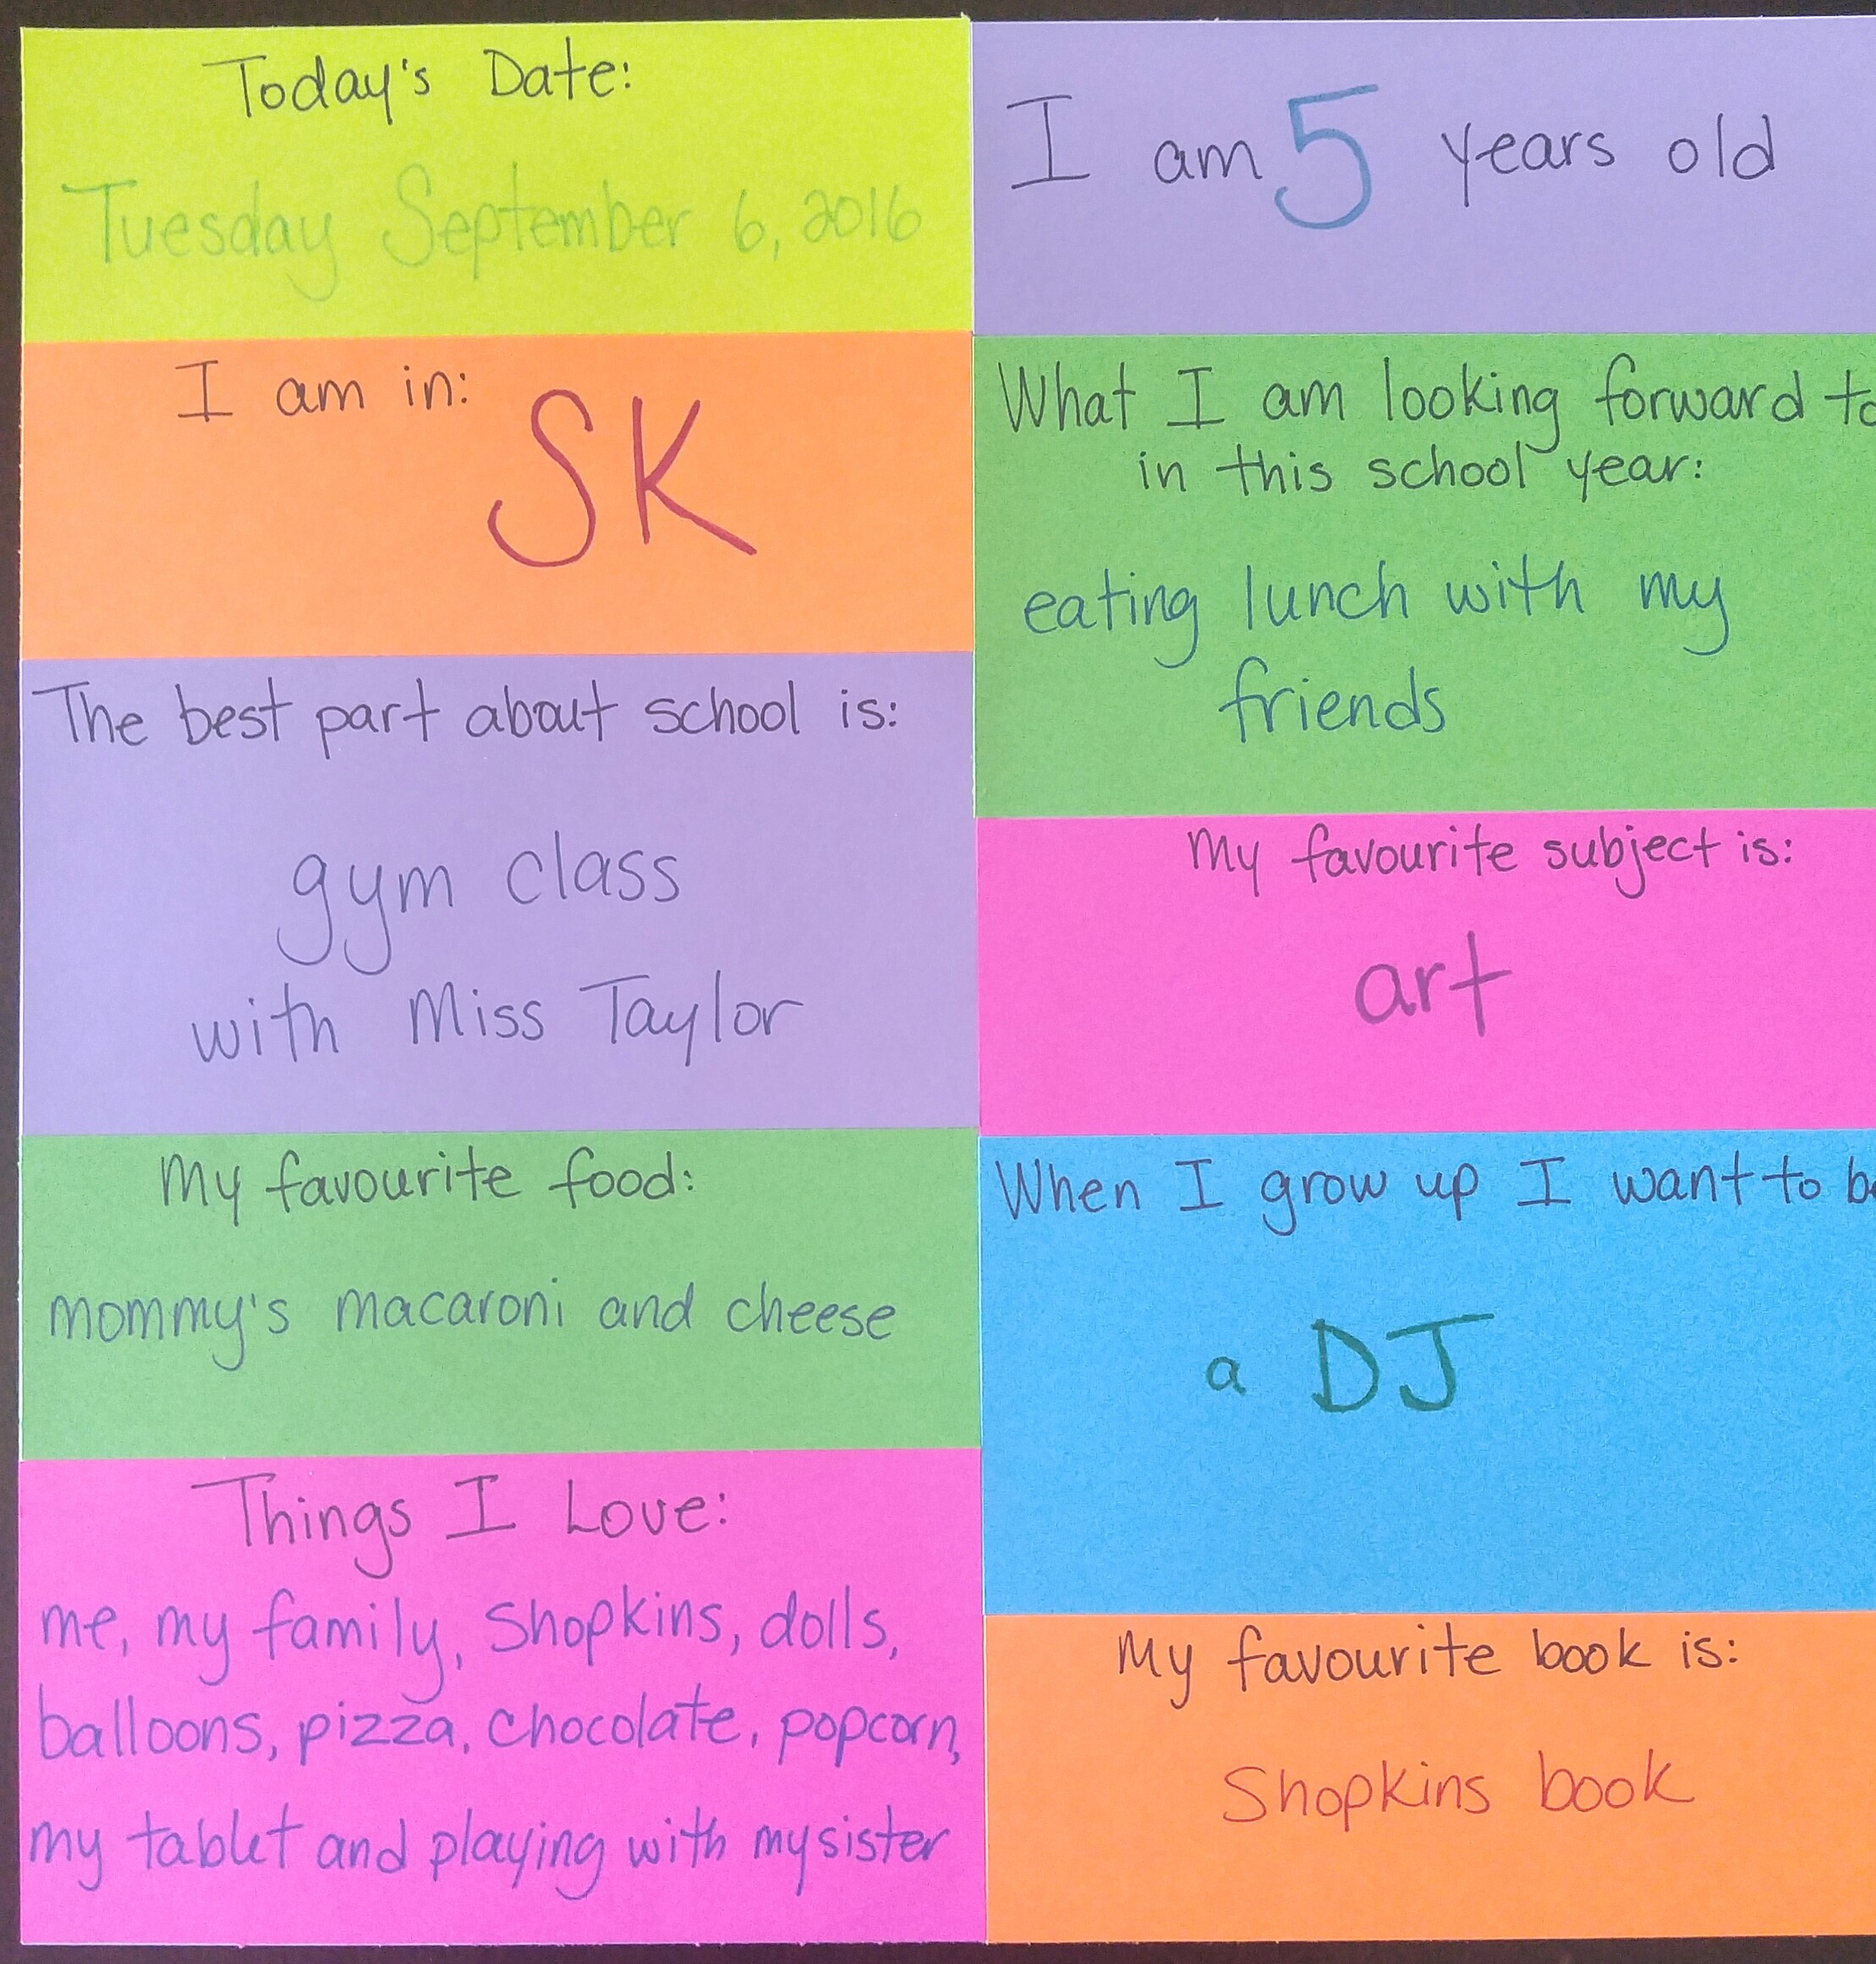 Today's Date:
Tuesday September 6, 2016
I am in:
SK
The best part about school is:
gym class
with Miss Taylor
My favourite food:
mommy's macaroni and cheese
Things I Love:
me, my family, Shopkins, dolls,
balloons, pizza, chocolate, popcorn,
my tablet and playing with my sister
I am 5 years old
What I am looking forward to
in this school year:
eating lunch with my
friends
My favourite subject is:
art
When I grow up I want to be
a DJ
My favourite book is:
Shopkins book